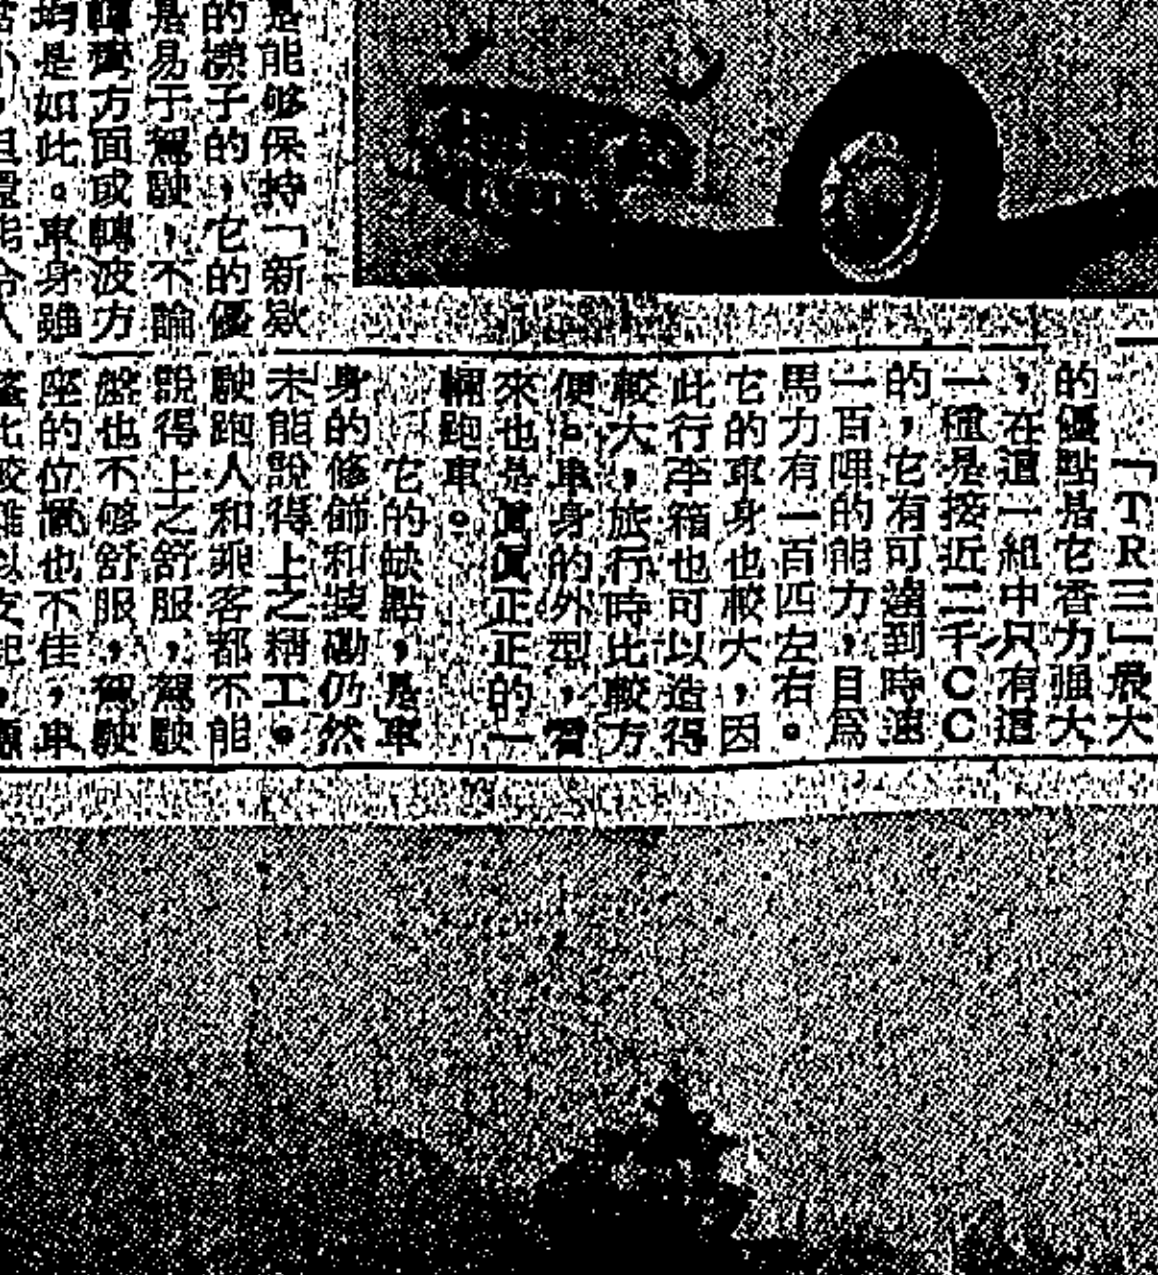 是能够保持「新欵
的樣子的,它的優
是易于駕駛,不論
轉彎方面或轉波方
均是如此。車身雖
「TR三」最大
的優點是它香力强大
,在這一組中只有這
一種是接近二千CC
的,它有可達到時速
一百哩的能力,目爲
馬力有一百四左右。
它的車身也較大,因
此行李箱也可以造得
較大,旅行時比較方
便。車身的外型,看
來也是眞眞正正的一
輛跑車。
它的缺點,是車
身的修飾和裝仍然
未能說得上之精工。
駛跑人和乘客都不能
說得上之舒服,駕駛
盤也不够舒服,駕駛
座的位置也不佳,車